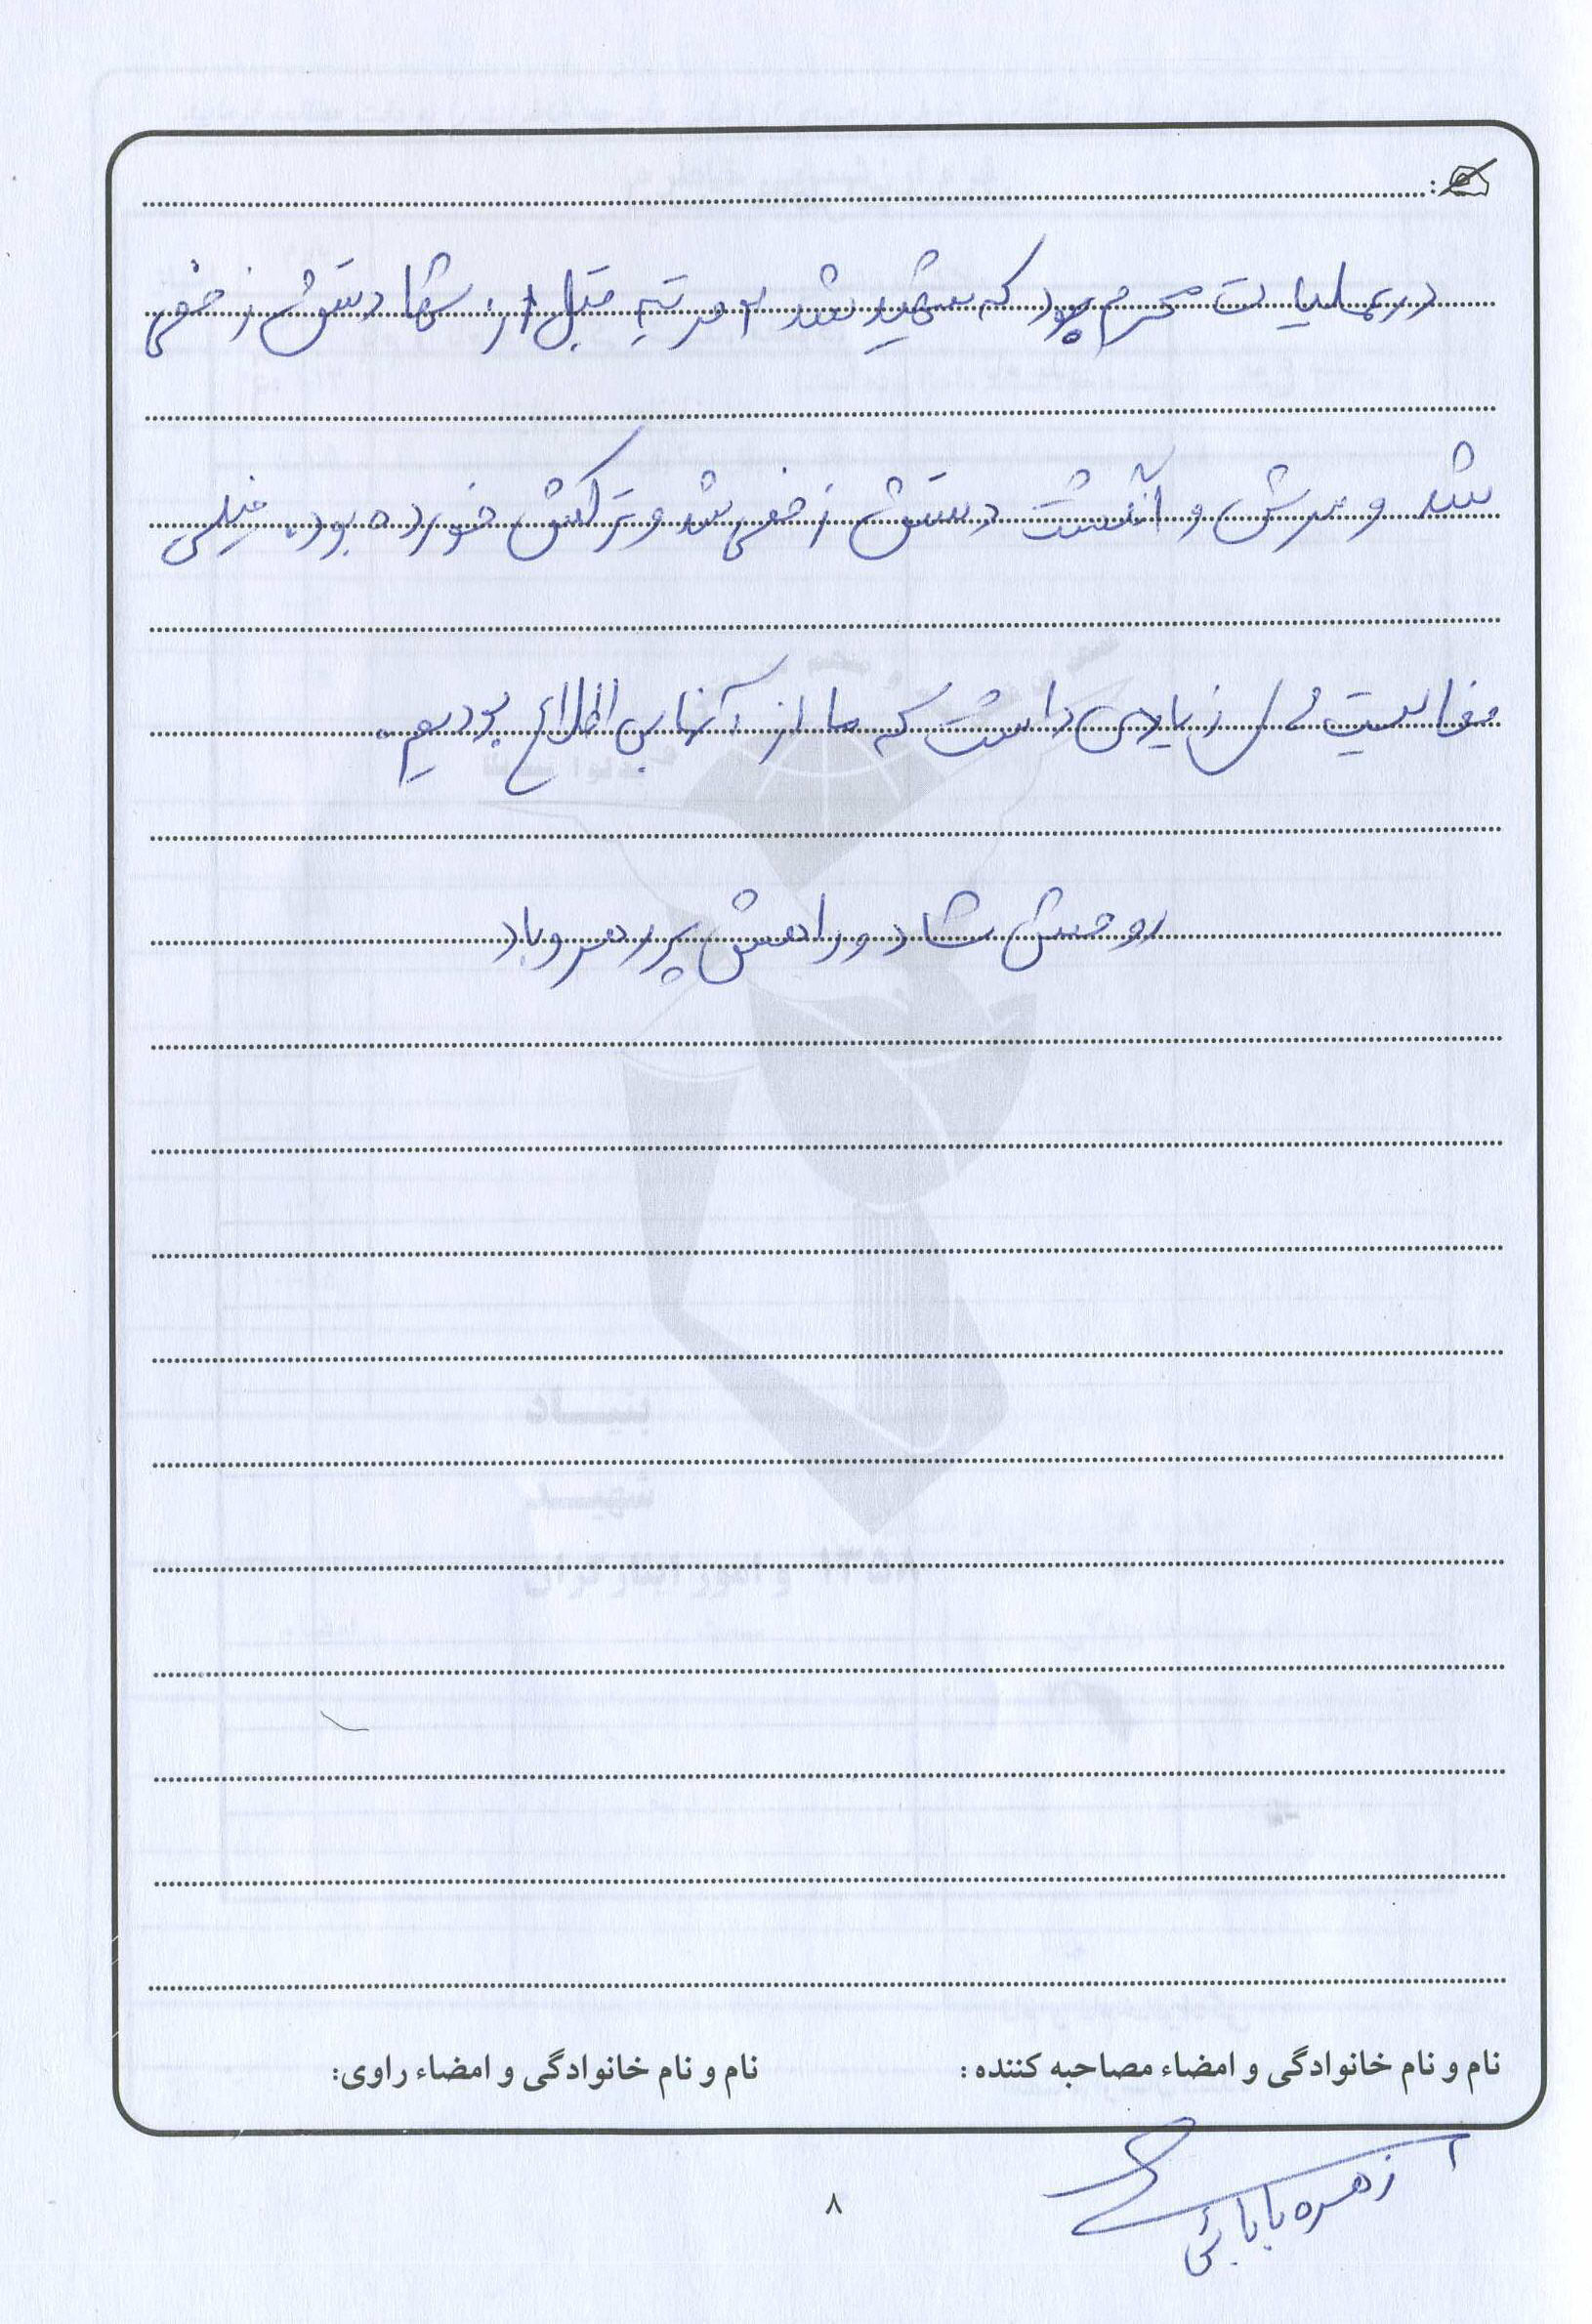 :
درعملیات محرم بود که شهید شد ۲ مرتبه قبل از شهادتش زخمی
شد و سرش و انگشت دستش زخمی شد و ترکش خورده بود. خیلی
فعالیت های زیادی داشت که ما از آنها بی اطلاع بودیم.
روحش شاد و راهش پر رهرو باد
نام و نام خانوادگی و امضاء مصاحبه کننده : نام و نام خانوادگی و امضاء راوی:
زهره بابائی
۸
بنیاد
شهید
۱۳۵۸ و امور ایثارگران